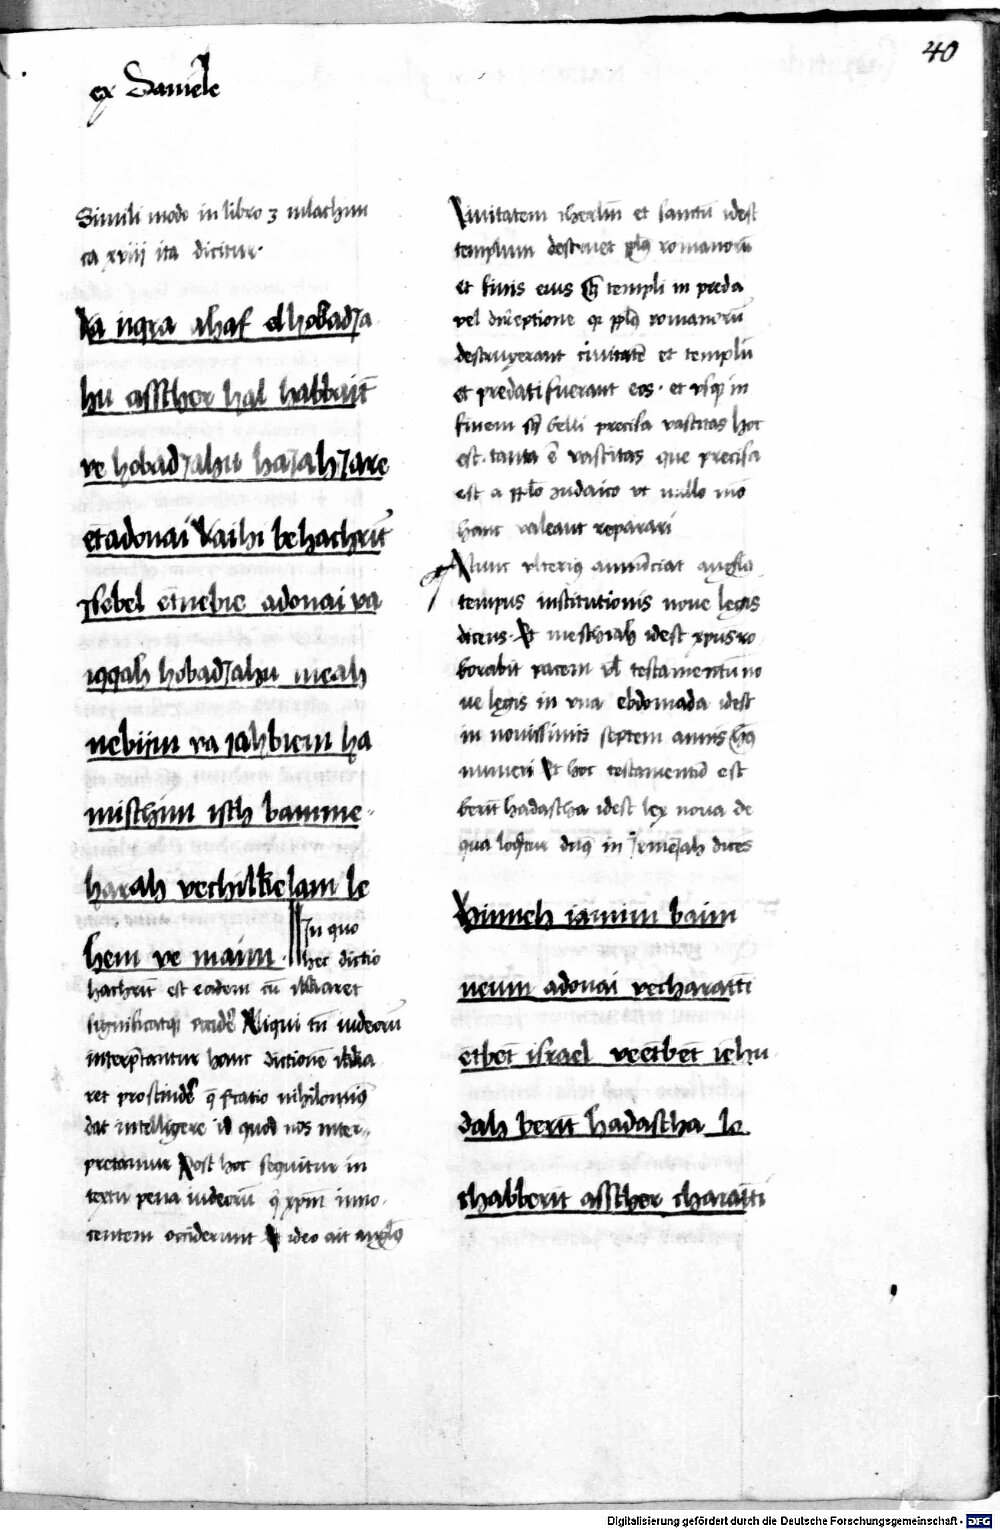 40
ex Daniele
Simili modo in libro 3 mlachim
ca xviij ita dicitur·
Va iiqra ahaf elhobadJa
hu assther hal habbait
ve hobadJahu haJahJare
etadonai Vaihi behachrit
Jsebel etnebie adonai va
iqqah hobadJahu meah
nebiim va Jahbiem ha
misthim isth bamme-
harah vechilkelam le
hem ve maim · In quo
hec dictio
hachrit est eadem cu ikkaret
significatqz Aliqui tn iudeoru
interptantur hanc dictione ikka
ret pro q ptatio nihilomi9
dat intelligere id quod nos inter-
pretamur Post hoc sequitur in
textu pena iudeoru q xpm inno-
centem occiderunt Et ideo ait angl9
Civitatem iherlm et sanctu idest
templum destruet ppls romanoru
et finis eius templi in preda
vel direptione qz ppls romanoru
destruxerant civitate et templu
et predati fuerant eos· et vsqz in
finem belli precisa vastitas hoc
est· tanta e vastitas que precisa
est a pplo Judaico vt nullo mo
hanc valeant reparari
Nunc vlterius annuciat angl9
tempus institutionis noue legis
dicens· Et meschiah idest xpus ro
borabit pacem vl testamentu no
ue legis in vna ebdomada idest
in nouissimis septem annis
numeri Et hoc testamentu est
berit hadascha idest lex noua de
qua loqtur dns in Jrmejah dices
Hinneh iamim baim
neum adonai vecharatti
etbet israel veetbet iehu
dah berit hadastha lo
chabberit assther charatti
Digitalisierung gefördert durch die Deutsche Forschungsgemeinschaft - DFG